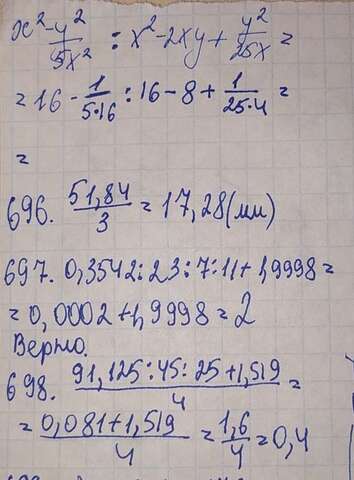 x² - y²/5x² : x² - 2xy + y²/25x =
= 16 - 1/5·16 : 16 - 8 + 1/25·4 =
=
696. 51,84/3 = 17,28(мм)
697. 0,3542:23:7:11+1,9998=
= 0,0002+1,9998=2
Верно.
698. 91,125:45:25+1,519/4 =
= 0,081+1,519/4 = 1,6/4 = 0,4